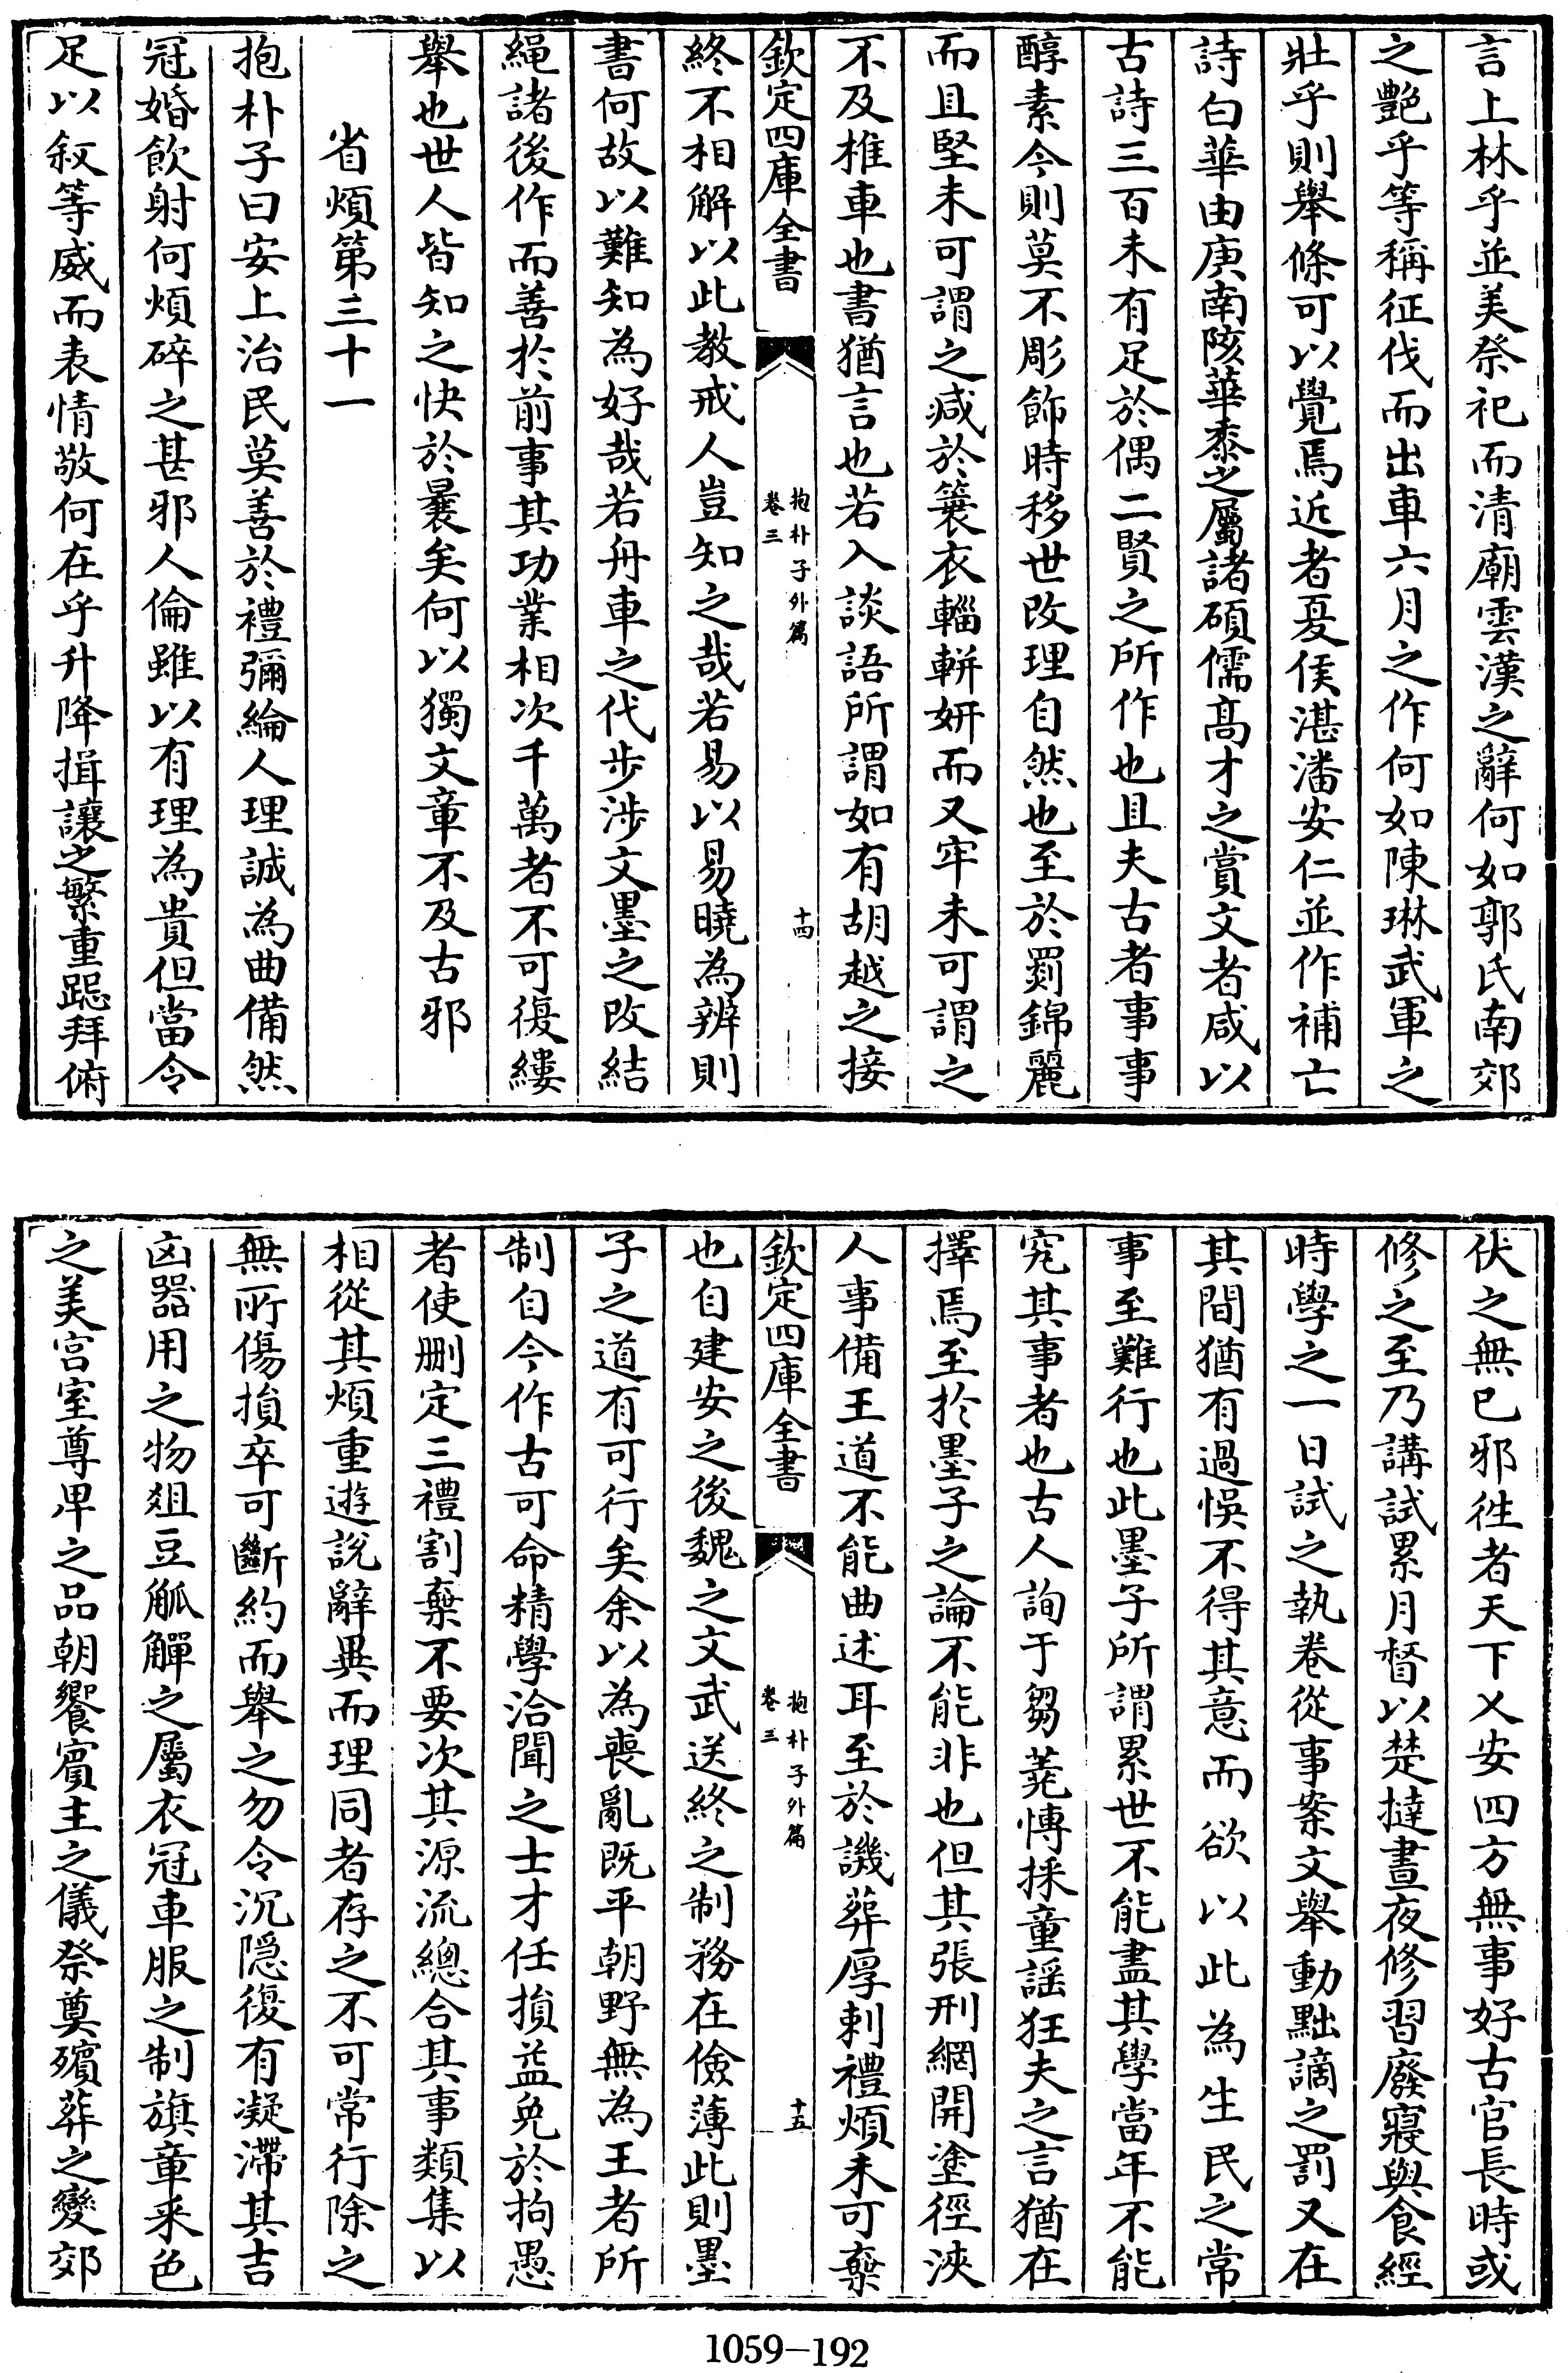 言上林乎並美祭祀而清廟雲漢之辭何如郭氏南郊
之艷乎等稱征伐而出車六月之作何如陳琳武軍之
壯乎則舉條可以覺焉近者夏侯湛潘安仁並作補亡
詩白華由庚南陔華黍之屬諸碩儒髙才之賞文者咸以
古詩三百未有足於偶二賢之所作也且夫古者事事
醇素今則莫不彫飾時移世改理自然也至於罽錦麗
而且堅未可謂之减於蓑衣輜軿妍而又牢未可謂之
不及椎車也書猶言也若入談語所謂如有胡越之接
欽定四庫全書
抱朴子外篇
卷三
十四
終不相解以此教戒人豈知之哉若易以易曉為辨則
書何故以難知為好哉若舟車之代步涉文墨之改結
繩諸後作而善於前事其功業相次千萬者不可復縷
舉也世人皆知之快於曩矣何以獨文章不及古邪
省煩第三十一
抱朴子曰安上治民莫善於禮彌綸人理誠為曲備然
冠婚飲射何煩碎之甚邪人倫雖以有理為貴但當令
足以叙等威而表情敬何在乎升降揖讓之繁重跽拜俯
伏之無已邪徃者天下乂安四方無事好古官長時或
修之至乃講試累月督以楚撻晝夜修習廢寢與食經
時學之一日試之執卷從事案文舉動黜謫之罰又在
其間猶有過悞不得其意而欲以此為生民之常
事至難行也此墨子所謂累世不能盡其學當年不能
究其事者也古人詢于芻蕘愽採童謡狂夫之言猶在
擇焉至於墨子之論不能非也但其張刑網開塗徑浹
人事備王道不能曲述耳至於譏葬厚刺禮煩未可棄
欽定四庫全書
抱朴子外篇
卷三
十五
也自建安之後魏之文武送終之制務在儉薄此則墨
子之道有可行矣余以為喪亂既平朝野無為王者所
制自今作古可命精學洽聞之士才任損益免於拘愚
者使刪定三禮割棄不要次其源流總合其事類集以
相從其煩重遊說辭異而理同者存之不可常行除之
無所傷損卒可斷約而舉之勿令沉隱復有凝滯其吉
凶器用之物俎豆觚觶之屬衣冠車服之制旗章采色
之美宮室尊卑之品朝饗賓主之儀祭奠殯葬之變郊
1059-192